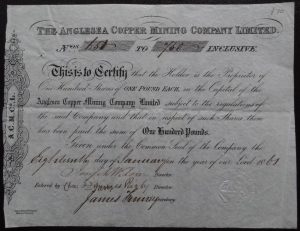 THE ANGLESEA COPPER MINING COMPANY LIMITED.
Nos. 651 TO 750 INCLUSIVE.
This is to Certify that the Holder is the Proprietor of
One Hundred Shares of ONE POUND EACH, in the Capital of the
Anglesea Copper Mining Company Limited subject to the regulations of
the said Company and that in respect of such Shares there
has been paid the sum of One Hundred Pounds.
Given under the Common Seal of the Company the
Eighteenth day of January in the year of our Lord 1861
Director
Entered by Director
James Secretary
A.C.M.C.L.